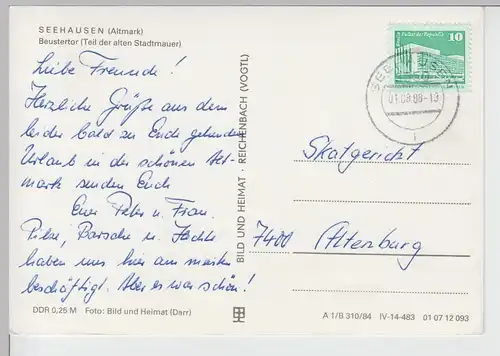 SEEHAUSEN (Altmark)
Beustertor (Teil der alten Stadtmauer)
Liebe Freunde!
Herzliche Grüße aus dem
leider bald zu Ende gehenden
Urlaub in der schönen Alt-
mark senden Euch
Euer Peter u. Frau.
Pilze, Barsche u. Hechte
haben uns hier am meisten
beschäftigt. Aber es war schön!
DDR 0,25 M Foto: Bild und Heimat (Darr)
BILD UND HEIMAT · REICHENBACH (VOGTL)
10
Palast der Republik
DDR
01.09.89-19
Skatgericht
7400 Altenburg
A 1/B 310/84 IV-14-483 01 07 12 093